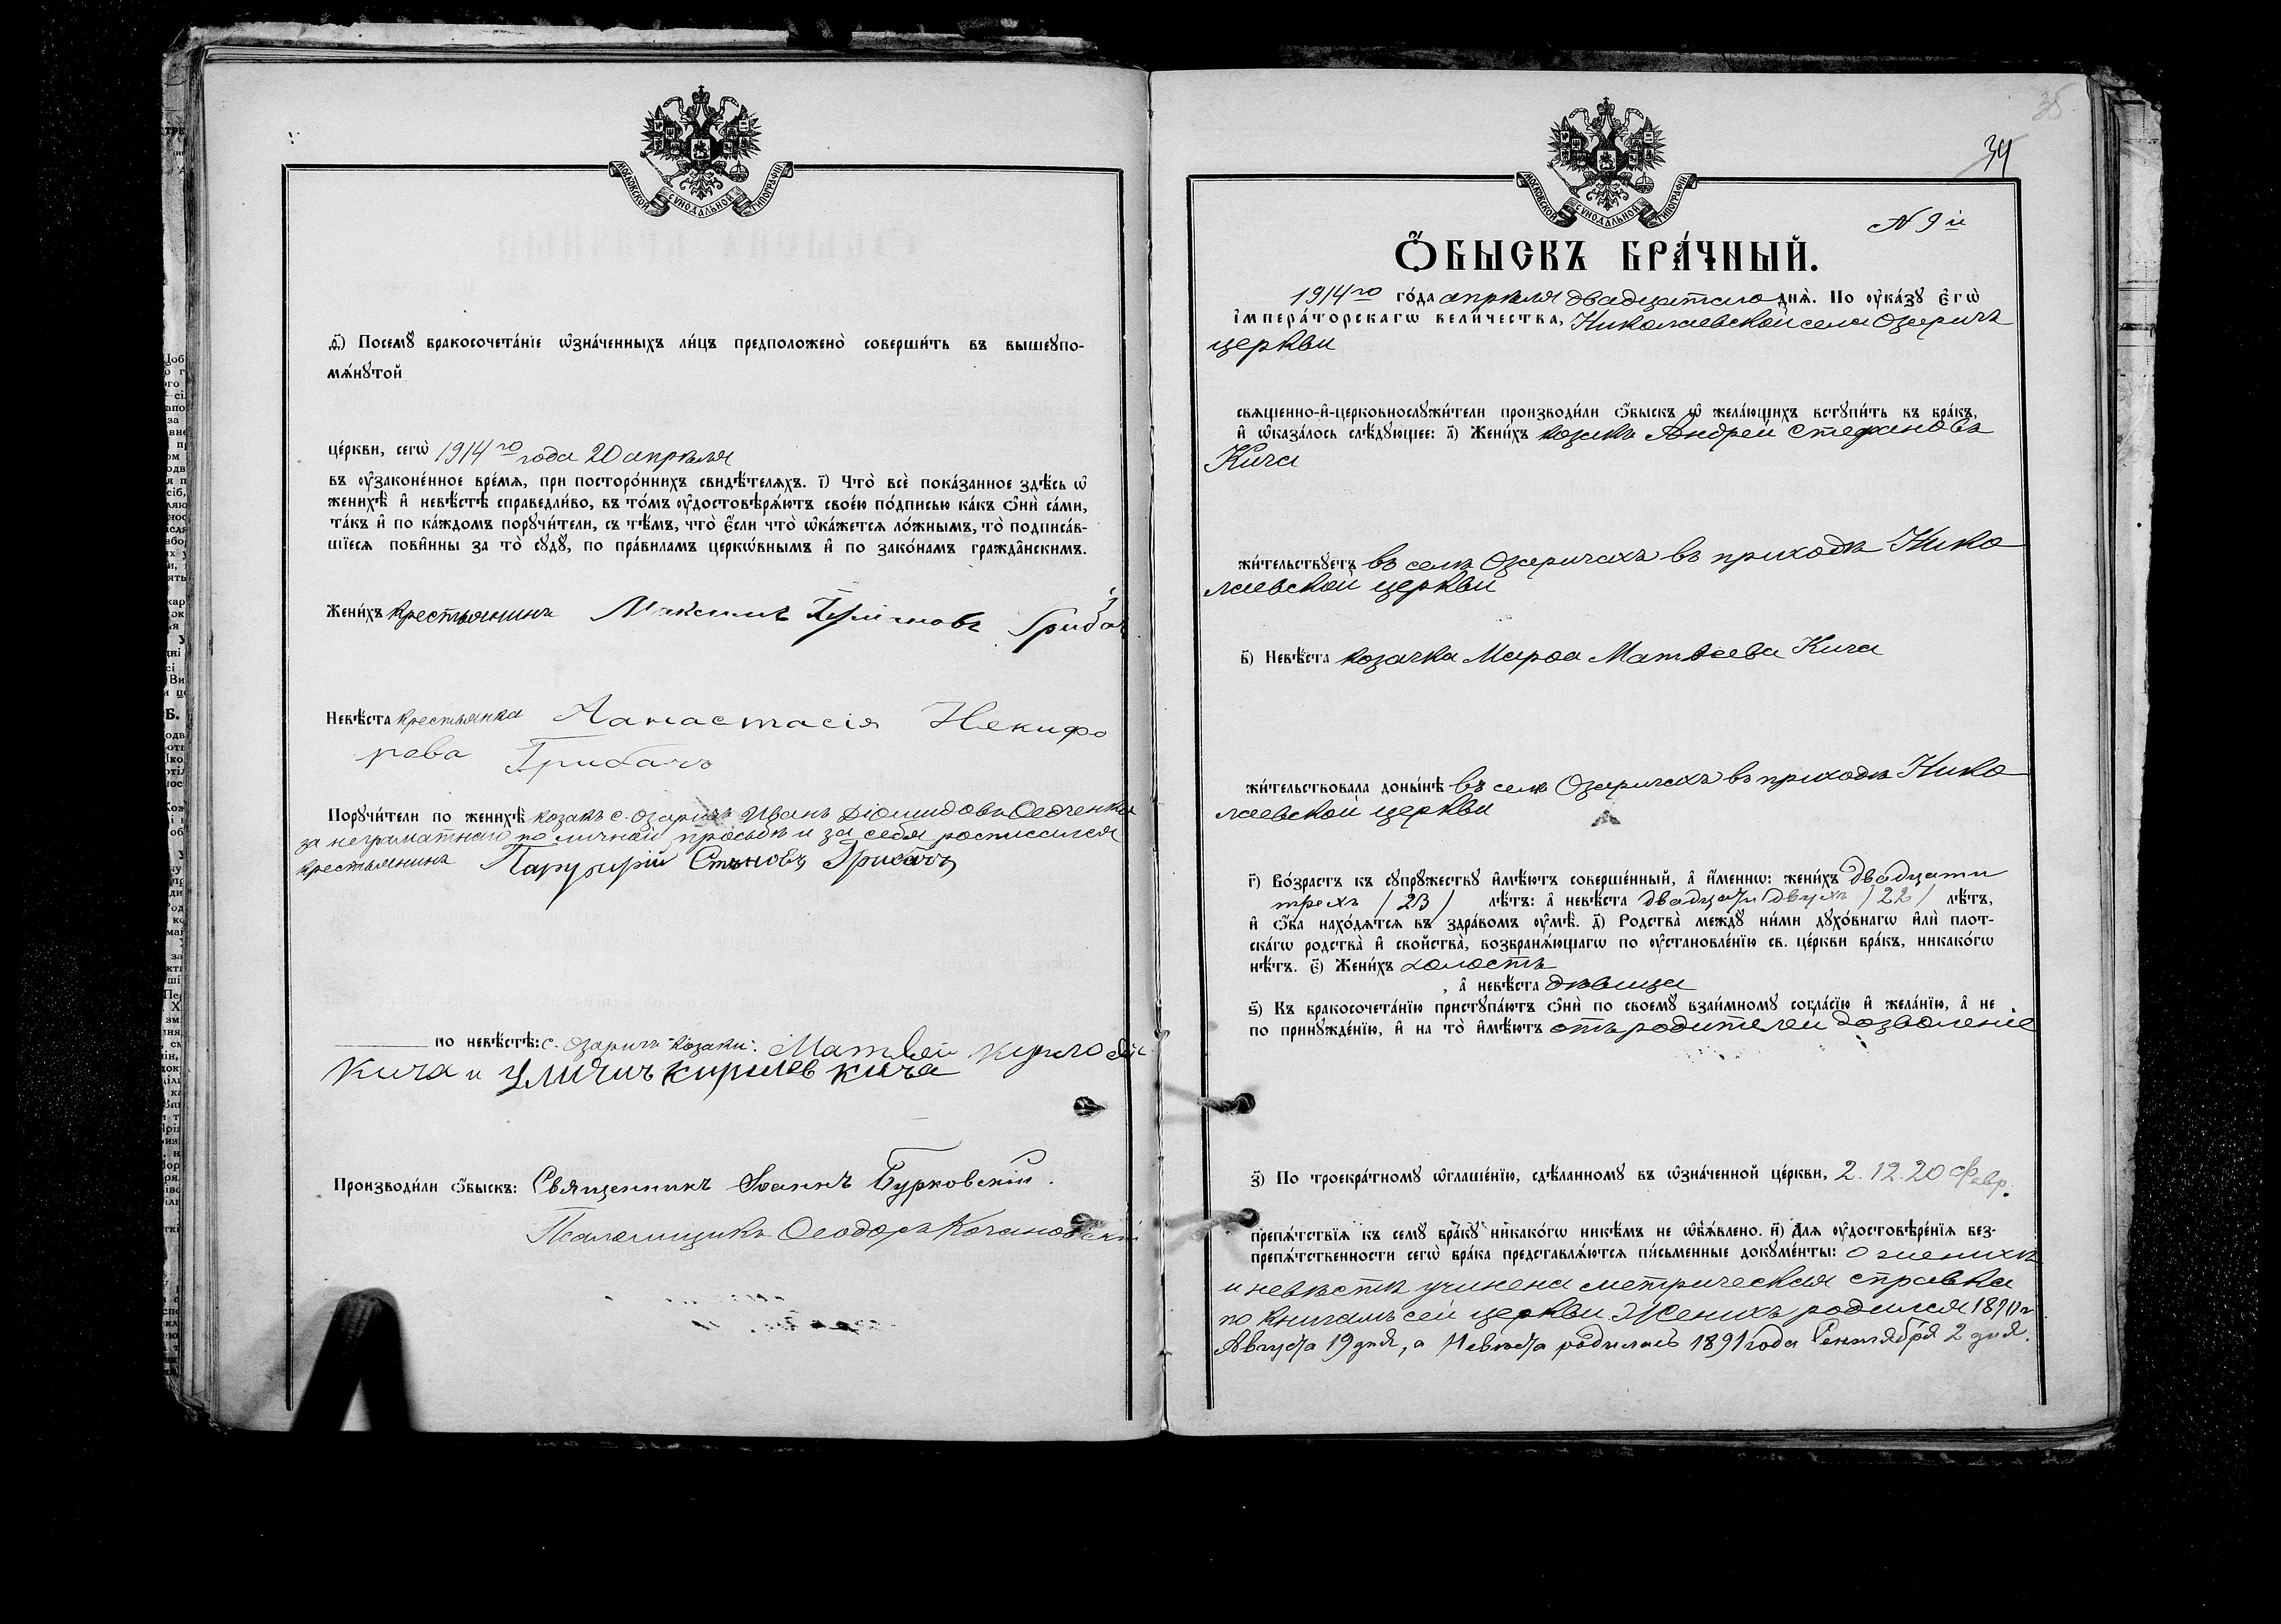 МОСКОВСКОЙ СУНОДАЛЬНОЙ ТИПОГРАФІИ
д҃) Посемꙋ бракосочета́нїе ѡ҆зна́ченныхъ ли́цъ предположено̀ соверши́ть въ вышеꙋпо-
мѧ́нꙋтой
це́ркви, сегѡ̀ 1914го года 20 апрѣля
въ ᲂу҆законе́нное вре́мѧ, при посторо́ннихъ свидѣ́телѧхъ. і҃) Что̀ всѐ пока́занное здѣ́сь ѡ҆
женихѣ̀ и҆ невѣ́стѣ справедли́во, въ то́мъ ᲂу҆достовѣрѧ́ютъ свое́ю по́дписью ка́къ ѻ҆нѝ са́ми,
та́къ и҆ по ка́ждомъ порꙋчи́тели, съ тѣ́мъ, что̀ є҆́сли что̀ ѡ҆ка́жетсѧ ло́жнымъ, то̀ подписа́в-
шїесѧ пови́нны за то̀ сꙋдꙋ̀, по пра́виламъ церкѡ́внымъ и҆ по зако́намъ гражда̑нскимъ.
Жени́хъ крестьянинъ Максимъ Грибач
Невѣ́ста крестьянка Анастасія Некифо
рова Грибачъ
Порꙋчи́тели по женихѣ̀ козакъ с. Озаричъ Иванъ Діомидовъ Ѳедченко
за неграматнаго по личной просьбѣ и за себя росписался
крестьянинъ Парфирій Грибачъ
по невѣ́стѣ: с. Озаричъ козаки: Матвей Кирилов
Кича и Кирилев Кича
Производи́ли ѻ҆́быскъ: Священникъ Іоаннъ Бурковскій.
Псаломщикъ Ѳеодоръ Кочановскій
35
34
МОСКОВСКОЙ СУНОДАЛЬНОЙ ТИПОГРАФІИ
N 9й
Ѻ҆́БЫСКЪ БРА́ЧНЫЙ.
1914го го́да апрѣля двадцатаго днѧ̀. По ᲂу҆ка́зꙋ є҆гѡ̀
і҆мпера́торскагѡ вели́чества, Николаевской села Озаричъ
церкви
свѧще́нно-и҆-церковнослꙋжи́тели производи́ли ѻ҆́быскъ ѡ҆ жела́ющихъ встꙋпи́ть въ бра́къ,
и҆ ѡ҆каза́лось слѣ́дꙋющее: а҃) Жени́хъ козакъ Андрей Стефановъ
Кича
жи́тельствꙋетъ въ селѣ Озаричахъ въ приходѣ Нико
лаевской церкви
в҃) Невѣ́ста козачка Марѳа Матвѣева Кича
жи́тельствовала доны́нѣ въ селѣ Озаричахъ въ приходѣ Нико
лаевской церкви
г҃) Во́зрастъ къ сꙋпрꙋ́жествꙋ и҆мѣ́ютъ соверше́нный, а҆ и҆́меннѡ: жени́хъ двадцати
трехъ /23/ лѣ́тъ: а҆ невѣ́ста двадцати двухъ /22/ лѣ́тъ,
и҆ ѻ҆́ба нахо́дѧтсѧ въ здра́вомъ ᲂу҆мѣ̀. д҃) Родства̀ междꙋ̀ ни́ми дꙋхо́внагѡ и҆лѝ плот-
ска́гѡ родства̀ и҆ сво́йства̀, возбранѧ́ющагѡ по ᲂу҆становле́нїю св. це́ркви бра́къ, никако́гѡ
нѣ́тъ. є҃) Жени́хъ холостъ
, а҆ невѣ́ста дѣвица
ѕ҃) Къ бракосочета́нїю пристꙋпа́ютъ ѻ҆нѝ по своемꙋ̀ взаи́мномꙋ согла́сїю и҆ жела́нїю, а҆ не
по принꙋжде́нїю, и҆ на то̀ и҆мѣ́ютъ отъ родителей дозволеніе
з҃) По троекра́тномꙋ ѡ҆глаше́нїю, сдѣ́ланномꙋ въ ѡ҆зна́ченной це́ркви, 2. 12. 20 Февр.
препѧ́тствїѧ къ семꙋ̀ бра́кꙋ никако́гѡ никѣ́мъ не ѡ҆б̾ѧ́влено. и҃) Длѧ ᲂу҆достовѣре́нїѧ без-
препѧ́тственности сегѡ̀ бра́ка представлѧ́ютсѧ пи́сьменные докꙋме́нты: о женихѣ
и невѣстѣ учинена метрическая справка
по книгамъ сей церкви. Женихъ родился 1890 г
Августа 19 дня, а Невѣста родилась 1891 года Сентября 2 дня.